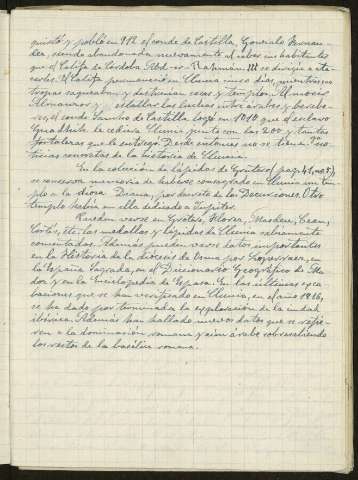 quistó y pobló en 912 el conde de Castilla, Gonzalo Fernan-
dez, siendo abandonada nuevamente al saber sus habitantes
que el Califa de Córdoba Abd-er-Rahman III se dirigía a ata-
carlos. El Califa permaneció en Clunia cinco dias, mientras sus
tropas saqueaban y destruian casas y templos. Al morir
Almanzor y estallar las luchas entre árabes y berebe-
res, el conde Sancho de Castilla logró en 1010 que el eslavo
le cediera Clunia junto con las 200 y tantas
fortalezas que le entregó. Desde entonces no se tienen no-
ticias concretas de la historia de Clunia.
En la colección de lápidas de Grutero (pag. 41, nº 5),
se conserva memoria de haberse consagrado en Clunia un tem-
plo a la diosa Diana, por decreto de los Decuriones. Otro
templo había en ella dedicado a Jupiter.
Pueden verse en Grutero, Florez, Masdeu, Cean,
Cortés, etc. las medallas y lápidas de Clunia sabiamente
comentadas. Además pueden verse datos importantes
en la Historia de la diócesis de Osma por Loperraez, en
la España Sagrada, en el Diccionario Geográfico de Ma-
doz y en la Enciclopedia de Espasa. En las últimas exca-
vaciones que se han verificado en Clunia, en el año 1916,
se ha dado por terminada la exploración de la ciudad
ibérica. Además han hallado nuevos datos que se refie-
ren a la dominación romana y aún árabe sobresaliendo
los restos de la basílica romana.